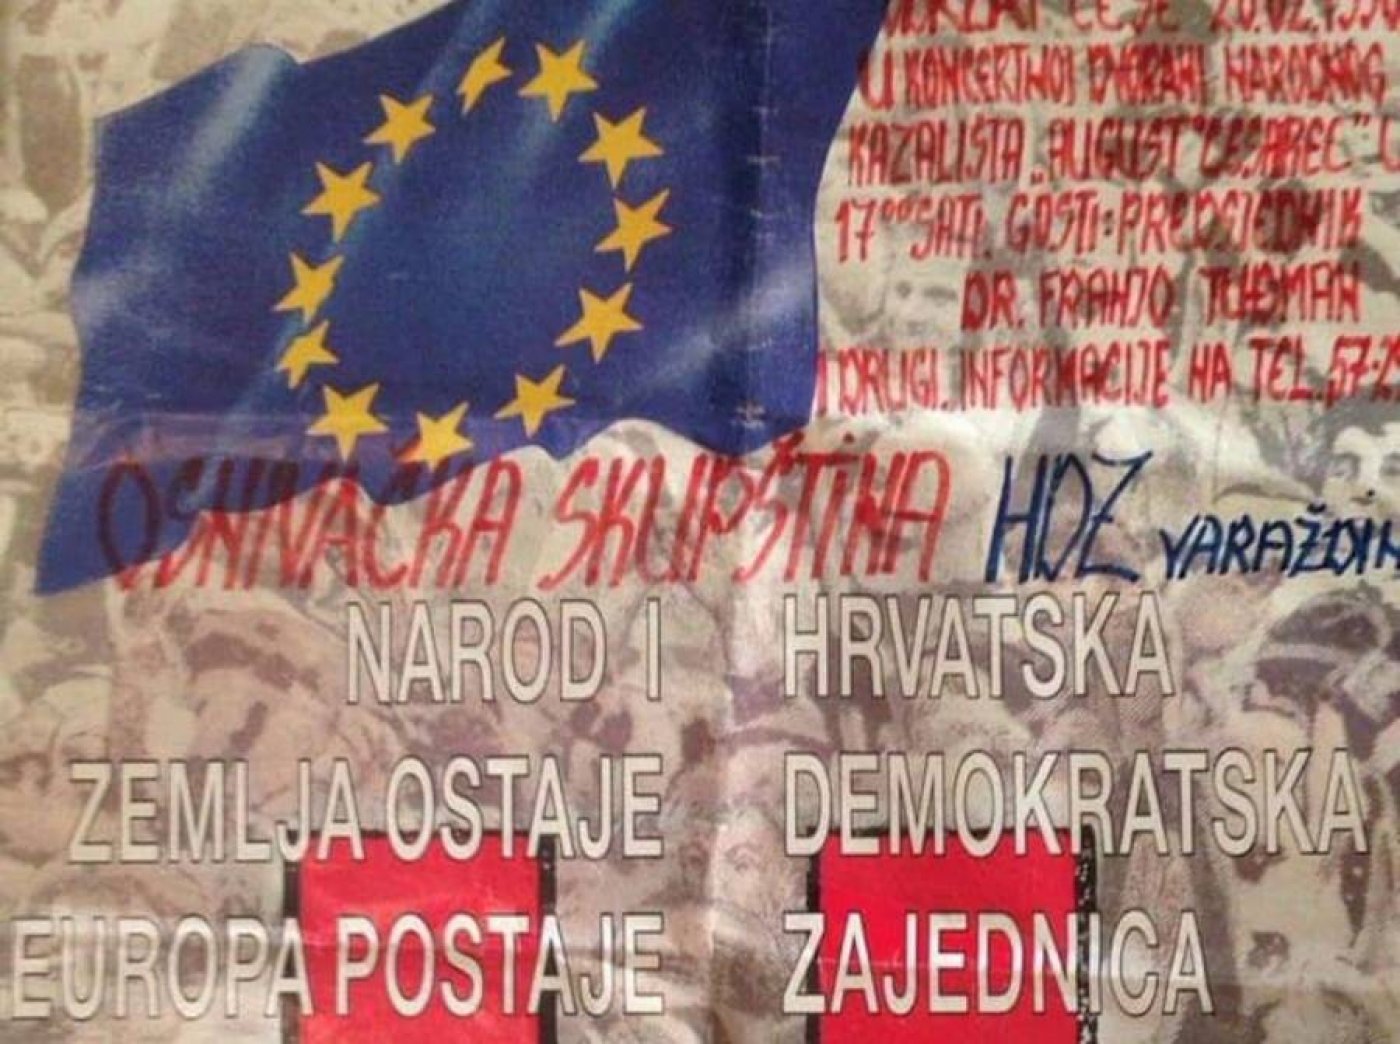 ODRŽAT ĆE SE 20.02.1990
U KONCERTNOJ DVORANI NARODNOG
KAZALIŠTA „AUGUST CESAREC" U
17⁰⁰ SATI. GOSTI: PREDSJEDNIK
DR. FRANJO TUĐMAN
I DRUGI. INFORMACIJE NA TEL. 57-2
OSNIVAČKA SKUPŠTINA HDZ VARAŽDIN
NAROD I
ZEMLJA OSTAJE
EUROPA POSTAJE
HRVATSKA
DEMOKRATSKA
ZAJEDNICA